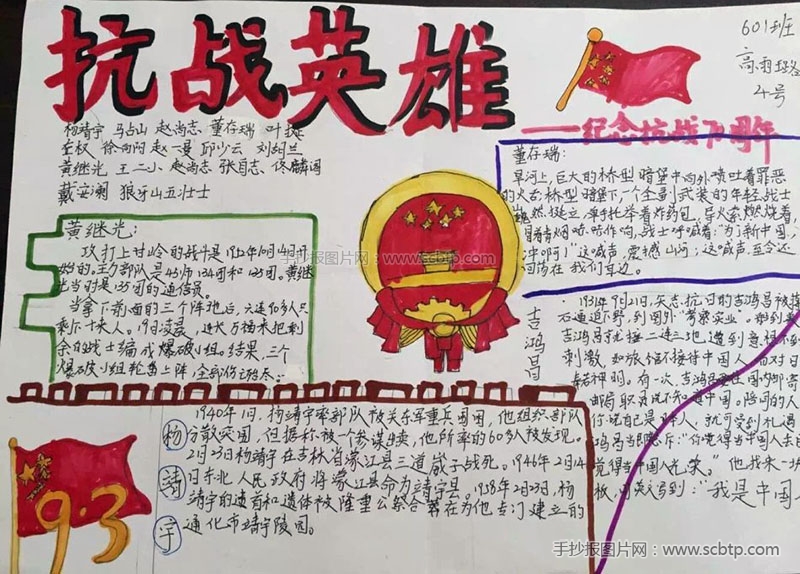 抗战英雄
601班
4号
——纪念抗战70周年
杨靖宇 马占山 赵尚志 董存瑞 叶挺
左权 徐向前 赵一曼 邱少云 刘胡兰
黄继光 王二小 赵尚志 张自忠 佟麟阁
戴安澜 狼牙山五壮士
黄继光:
攻打上甘岭的战斗是1952年10月14日开
始的。主力部队是45师134团和135团。黄继
光当时是135团的通信员。
当拿下前面的三个阵地后,六连90多人只
剩下十来人。19日凌晨,
余的战士编成爆破小组。结果,三个
爆破小组轮番上阵,全部伤亡殆尽。
董存瑞:
旱河上,巨大的桥型暗堡中向外喷吐着罪恶
的火舌,桥型暗堡下,一个全副武装的年轻战士
巍然挺立,单手托举着炸药包,导火索燃烧着,
冒着青烟 咝咝作响,战士呼喊着:“为了新中国,
冲啊!”这喊声,震撼山河;这喊声,至今还
回荡在我们耳边。
吉鸿昌
1931年9月21日,矢志抗日的吉鸿昌被
下野,到国外“考察实业”。
吉鸿昌接二连三地遭到意想不到
刺激,如旅馆不接待中国人,而对日
有一次,吉鸿昌要往国内邮寄
邮局职员 中国。陪同的人
你说自己是日本人,就可受到礼遇
鸿昌当即怒斥:“你觉得当中国人丢
觉得当中国人光荣。”他找来一块
板,用英文写到:“我是中国
杨靖宇
1940年1月,杨靖宇率部队被关东军重兵围困,他组织部队
分散突围,但据称被一个参谋出卖,他所率的60多人被发现。
2月23日杨靖宇在吉林省濛江县三道崴子战死。1946年2月14
日东北人民政府将濛江县命为靖宇县。1958年2月23日,杨
靖宇的遗首和遗体被隆重公祭合葬在为他专门建立的
通化市靖宇陵园。
9·3
手抄报图片网:www.scbtp.com
手抄报图片网:www.scbtp.com